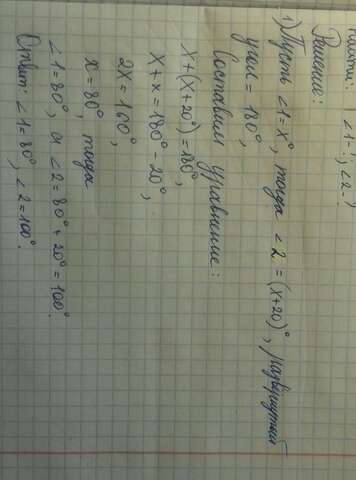 Найти: ∠1-?, ∠2-?
Решение:
1) Пусть ∠1=x°, тогда ∠2 = (x+20)°, развёрнутый
угол = 180°,
Составим уравнение:
x+(x+20°)=180°,
x+x=180°-20°,
2x=160°,
x=80°, тогда
∠1=80°, а ∠2=80°+20°=100°.
Ответ: ∠1=80°, ∠2=100°.